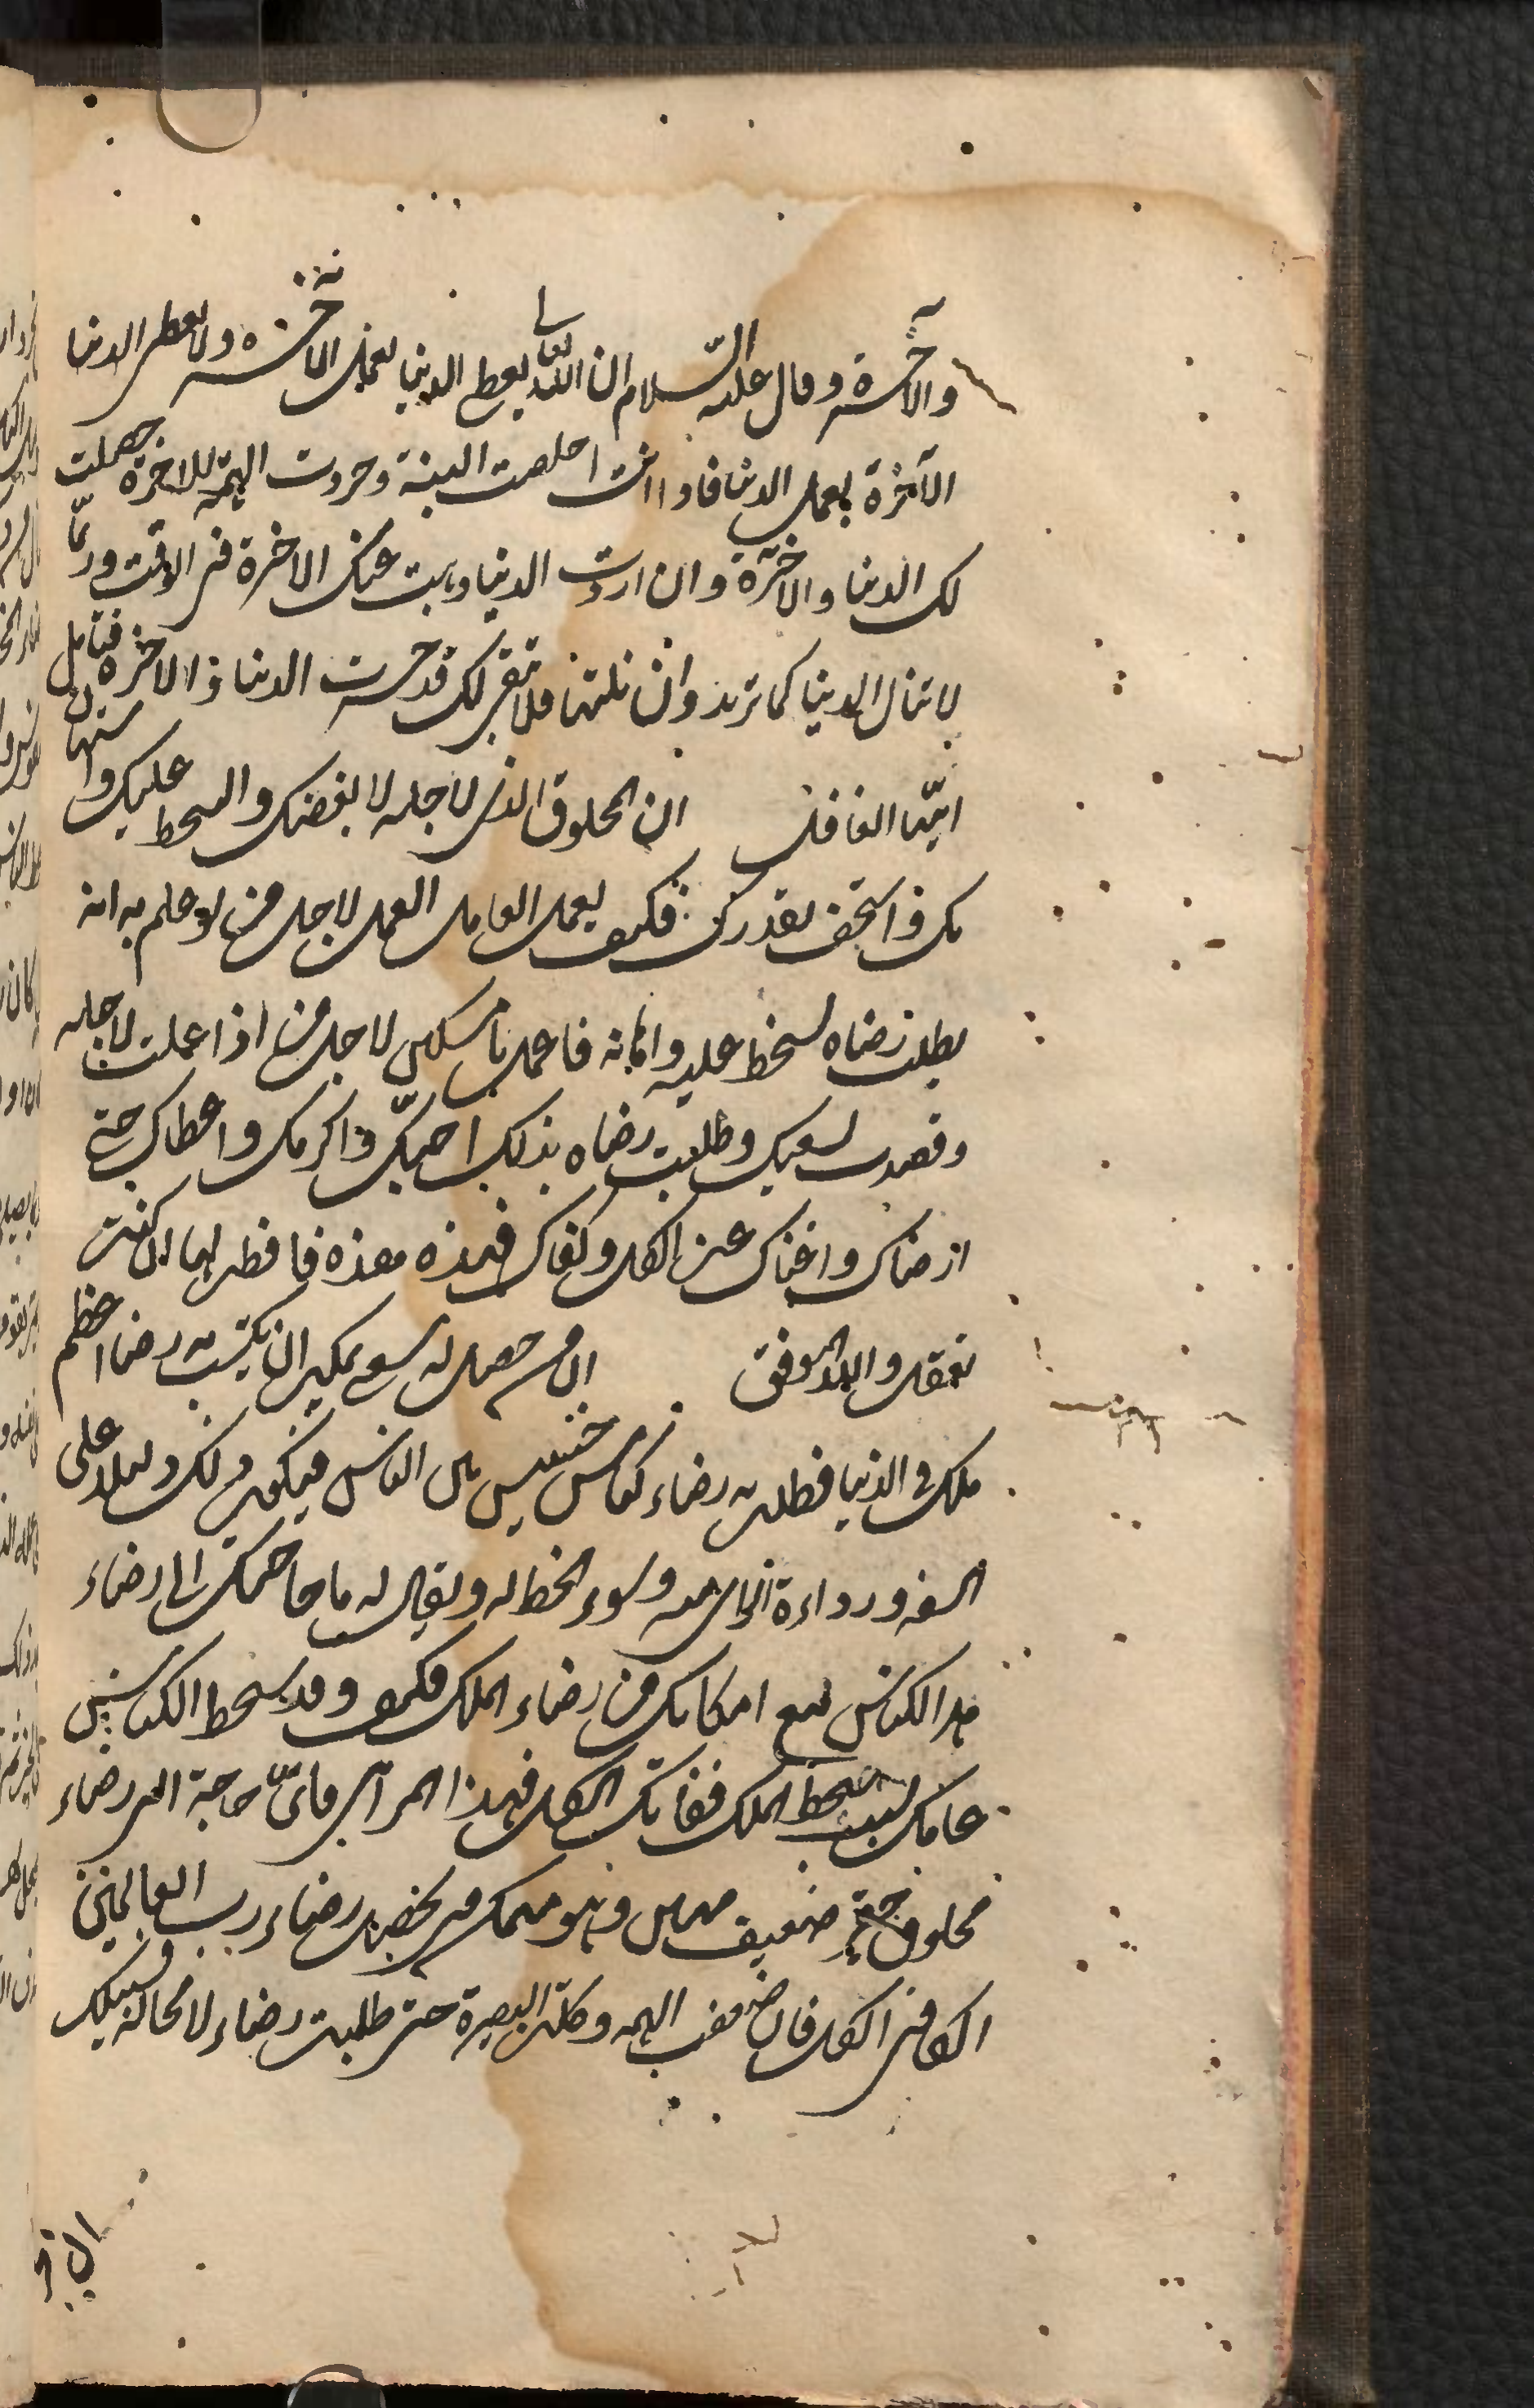 والآخرة وقال عليه السلام ان الله تعالى يعطى الدنيا بعمل الآخرة ولا يعطى الدنيا
الآخرة بعمل الدنيا فاذا انت اخلصت النية وجردت الهمة للاخرة حصلت
لك الدنيا والاخرة وان اردت الدنيا ذهبت عنك الاخرة فى الوقت وربما
لا تنال الدنيا كما تريد وان نلتها فلا تبقى لك فقد خسرت الدنيا والاخرة فتامل
ايها الغافل ان المخلوق الذى لاجله لا بغضك والسخط عليك واستهان
بك واستخف بقدرك فكيف يعمل العامل العمل لاجل من لو علم به انه
يطلب رضاه لسخط عليه واهانه فاعمل يا مسكين لاجل من اذا عملت لاجله
وقصدت بسعيك وطلبت رضاه بذلك احبك واكرمك واعطاك حتى
ارضاك واغناك عن الكل وكفاك فهذه هذه فافطن لها ان كنت
تعقل والله الموفق ان من حصل له سعى يمكن ان يكتسب به رضا اعظم
ملك فى الدنيا فطلب به رضاء كناس خسيس بين الناس فيكون ذلك دليلا على
السفه ورداءة الراى منه وسوء الحظ له ويقال له ما حاجتك الى رضاء
هذا الكناس مع امكانك من رضاء الملك فكيف وقد سخط الكناس
عليك بسبب سخط الملك ففاتك الكل فهذا المرائى فاى حاجة الى رضاء
مخلوق حقير ضعيف مهين وهو متمكن من تحصيل رضاء رب العالمين
الكافى الكل فان ضعفت الهمة وكلت البصيرة حتى طلبت رضاء لا محالة فسبيلك